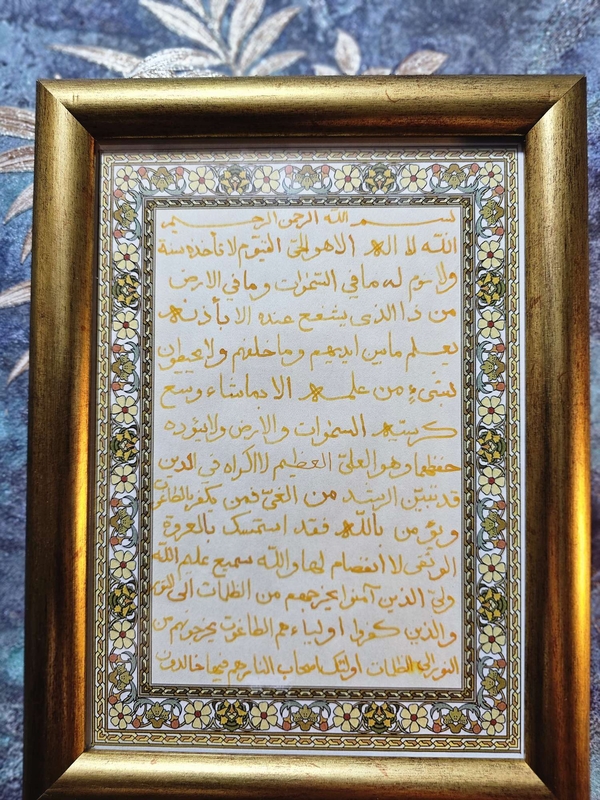 بسم الله الرحمن الرحيم
الله لا اله الا هو الحي القيوم لا تأخذه سنة
ولا نوم له ما في السموات وما في الارض
من ذا الذي يشفع عنده الا بأذنه
يعلم ما بين ايديهم وما خلفهم ولا يحيطون
بشيءٍ من علمه الا بماشاء وسع
كرسيه السموات والارض ولا يئوده
حفظهما وهو العليّ العظيم لا اكراه في الدين
قد تبيّن الرشد من الغيّ فمن يكفر بالطاغوت
ويؤمن بالله فقد استمسك بالعروة
الوثقى لا أنفصام لها والله سميع عليم الله
وليّ الذين آمنوا يخرجهم من الظلمات الى النور
والذين كفروا اولياءهم الطاغوت يخرجونهم من
النور الى الظلمات اولئك اصحاب النار هم فيها خالدون